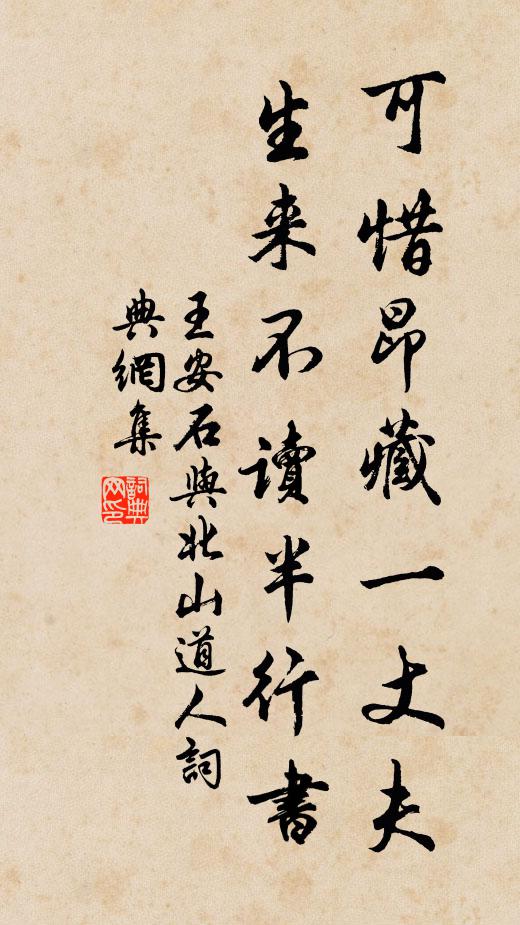 可惜昂藏一丈夫
生来不讀半行書
王安石與北山道人詞
典網集
詞典网印